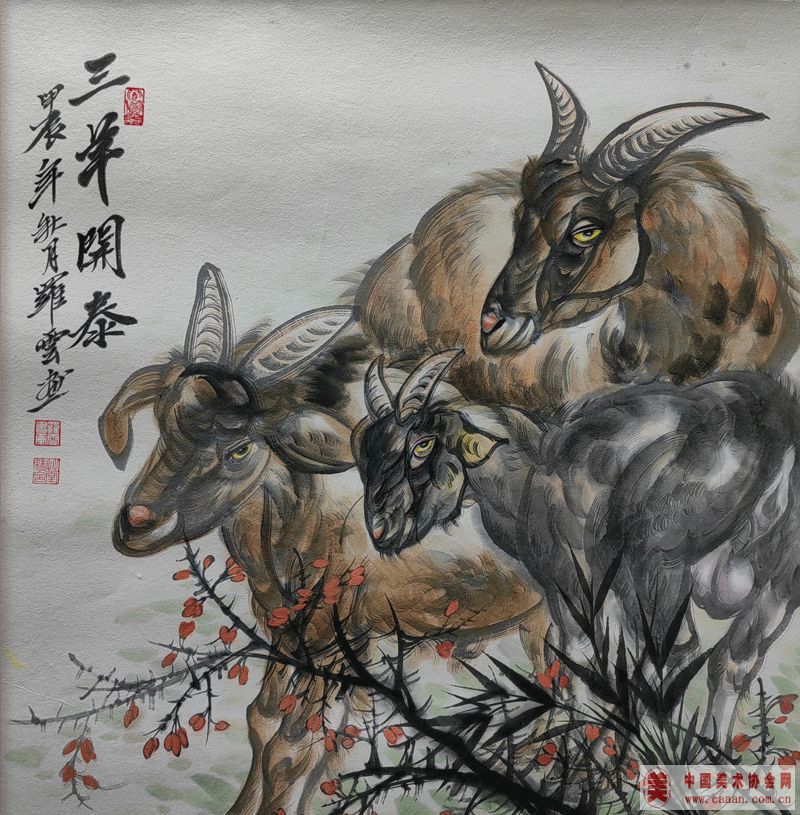 三羊開泰
甲辰年秋月羅雲画
美 中国美术协会网
www.caaan.com.cn